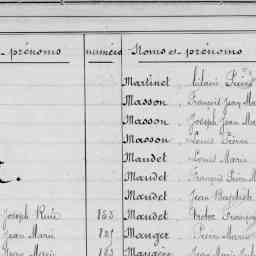 prénoms numéro Noms et prénoms
Martinet, Hilaire Pierre
Masson, François Jean Ma
Masson, Joseph Jean Ma
Masson, Louis Pierre
Maudet, Louis Marie
Maudet, François
Maudet, Jean Baptiste
Joseph René 153 Maudet, Victor François
Jean Marie 121 Mauger, Pierre Marie
Jean Marie 163 Mauger, Jean Marie